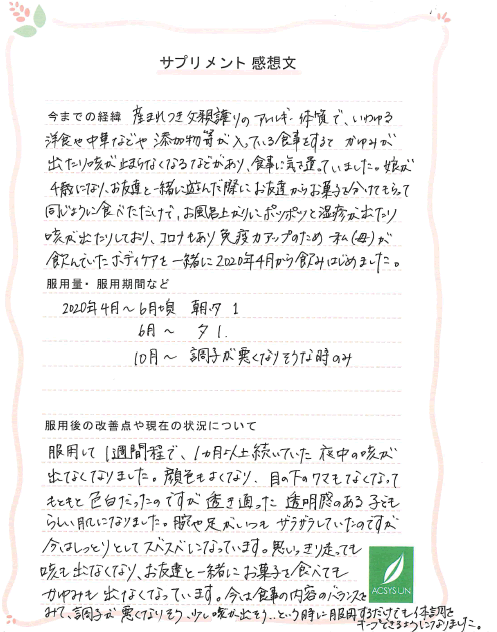 サプリメント 感想文
今までの経緯 産まれつき父親譲りのアレルギー体質で、いわゆる
洋食や中華などや添加物等が入っている食事をすると かゆみが
出たり咳が止まらなくなるなどがあり、食事に気を遣っていました。娘が
4歳になり、お友達と一緒に遊んだ際にお友達からお菓子を分けてもらって
同じように食べただけで、お風呂上がりにポツポツと湿疹が出たり
咳が出たりしており、コロナもあり免疫力アップのため 私(母)が
飲んでいたボディケアを一緒に2020年4月から飲みはじめました。
服用量・服用期間など
2020年4月～6月頃 朝夕 1
6月～ 夕 1.
10月～ 調子が悪くなりそうな時のみ
服用後の改善点や現在の状況について
服用して1週間程で、1ヵ月以上続いていた夜中の咳が
出なくなりました。顔色もよくなり、目の下のクマもなくなって
もともと色白だったのですが透き通った透明感のある子ども
らしい肌になりました。腕や足がいつもザラザラしていたのですが
今はしっとりとしてスベスベになっています。思いっきり走っても
咳も出なくなり、お友達と一緒にお菓子を食べても
かゆみも出なくなっています。今は食事の内容のバランスを
みて、調子が悪くなりそう、少し咳が出そう、という時に服用するだけでも体調を
キープできるようになりました。
ACSYSUN